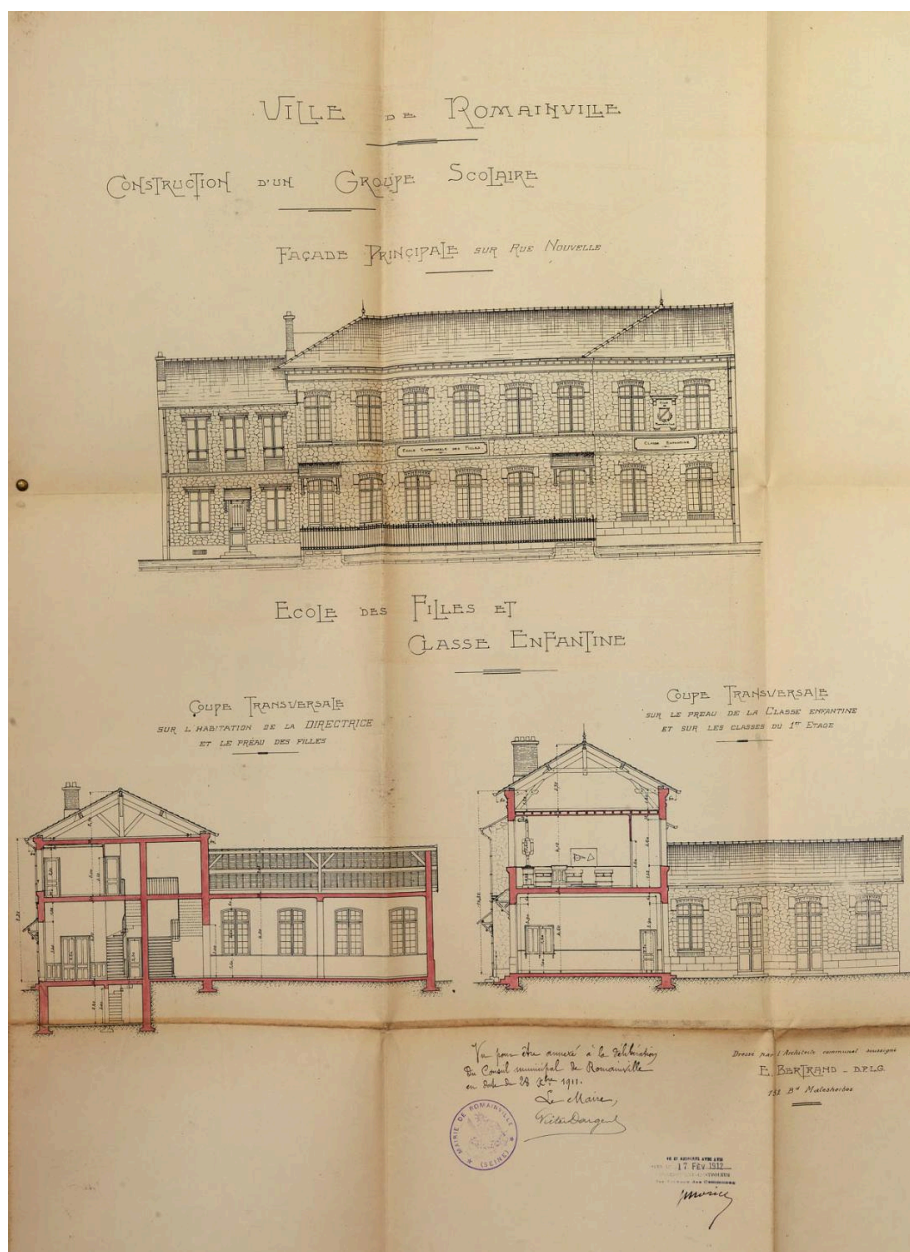 VILLE DE ROMAINVILLE
CONSTRUCTION D'UN GROUPE SCOLAIRE
FAÇADE PRINCIPALE SUR RUE NOUVELLE
ECOLE COMMUNALE DES FILLES
CLASSE ENFANTINE
ECOLE DES FILLES ET
CLASSE ENFANTINE
COUPE TRANSVERSALE
SUR L'HABITATION DE LA DIRECTRICE
ET LE PRÉAU DES FILLES
COUPE TRANSVERSALE
SUR LE PRÉAU DE LA CLASSE ENFANTINE
ET SUR LES CLASSES DU 1er ETAGE
Vu pour être annexé à la délibération
Du Conseil municipal de Romainville
en date du 28 Xbre 1911.
Le Maire,
MAIRIE DE ROMAINVILLE
(SEINE)
Dressé par l'Architecte communal soussigné
E. BERTRAND _ D.P.L.G.
Bd Malesherbes
17 FÉV. 1912